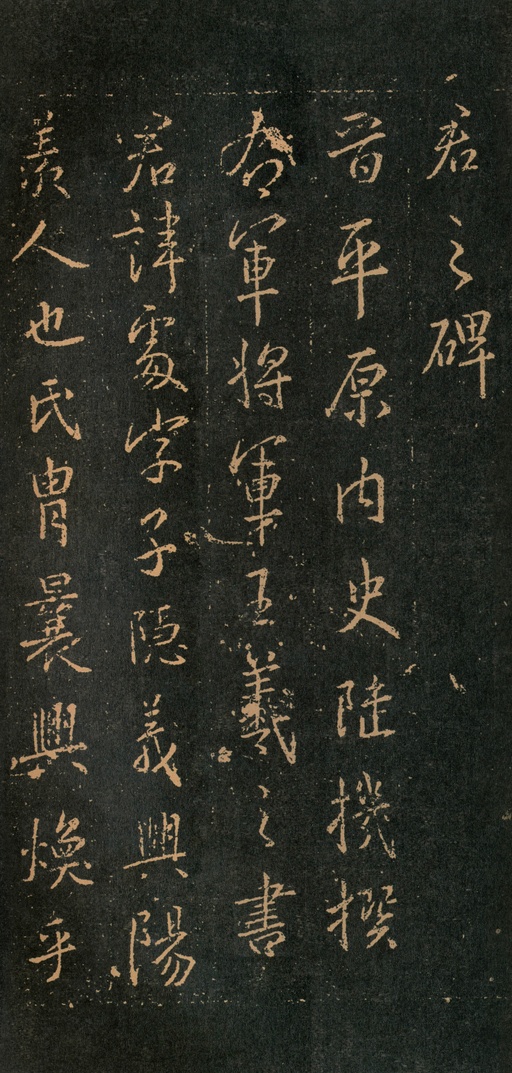 君之碑
晉平原內史陸機撰
右軍將軍王羲之書
君諱處字子隱義興陽
羡人也氏胄曩興煥乎